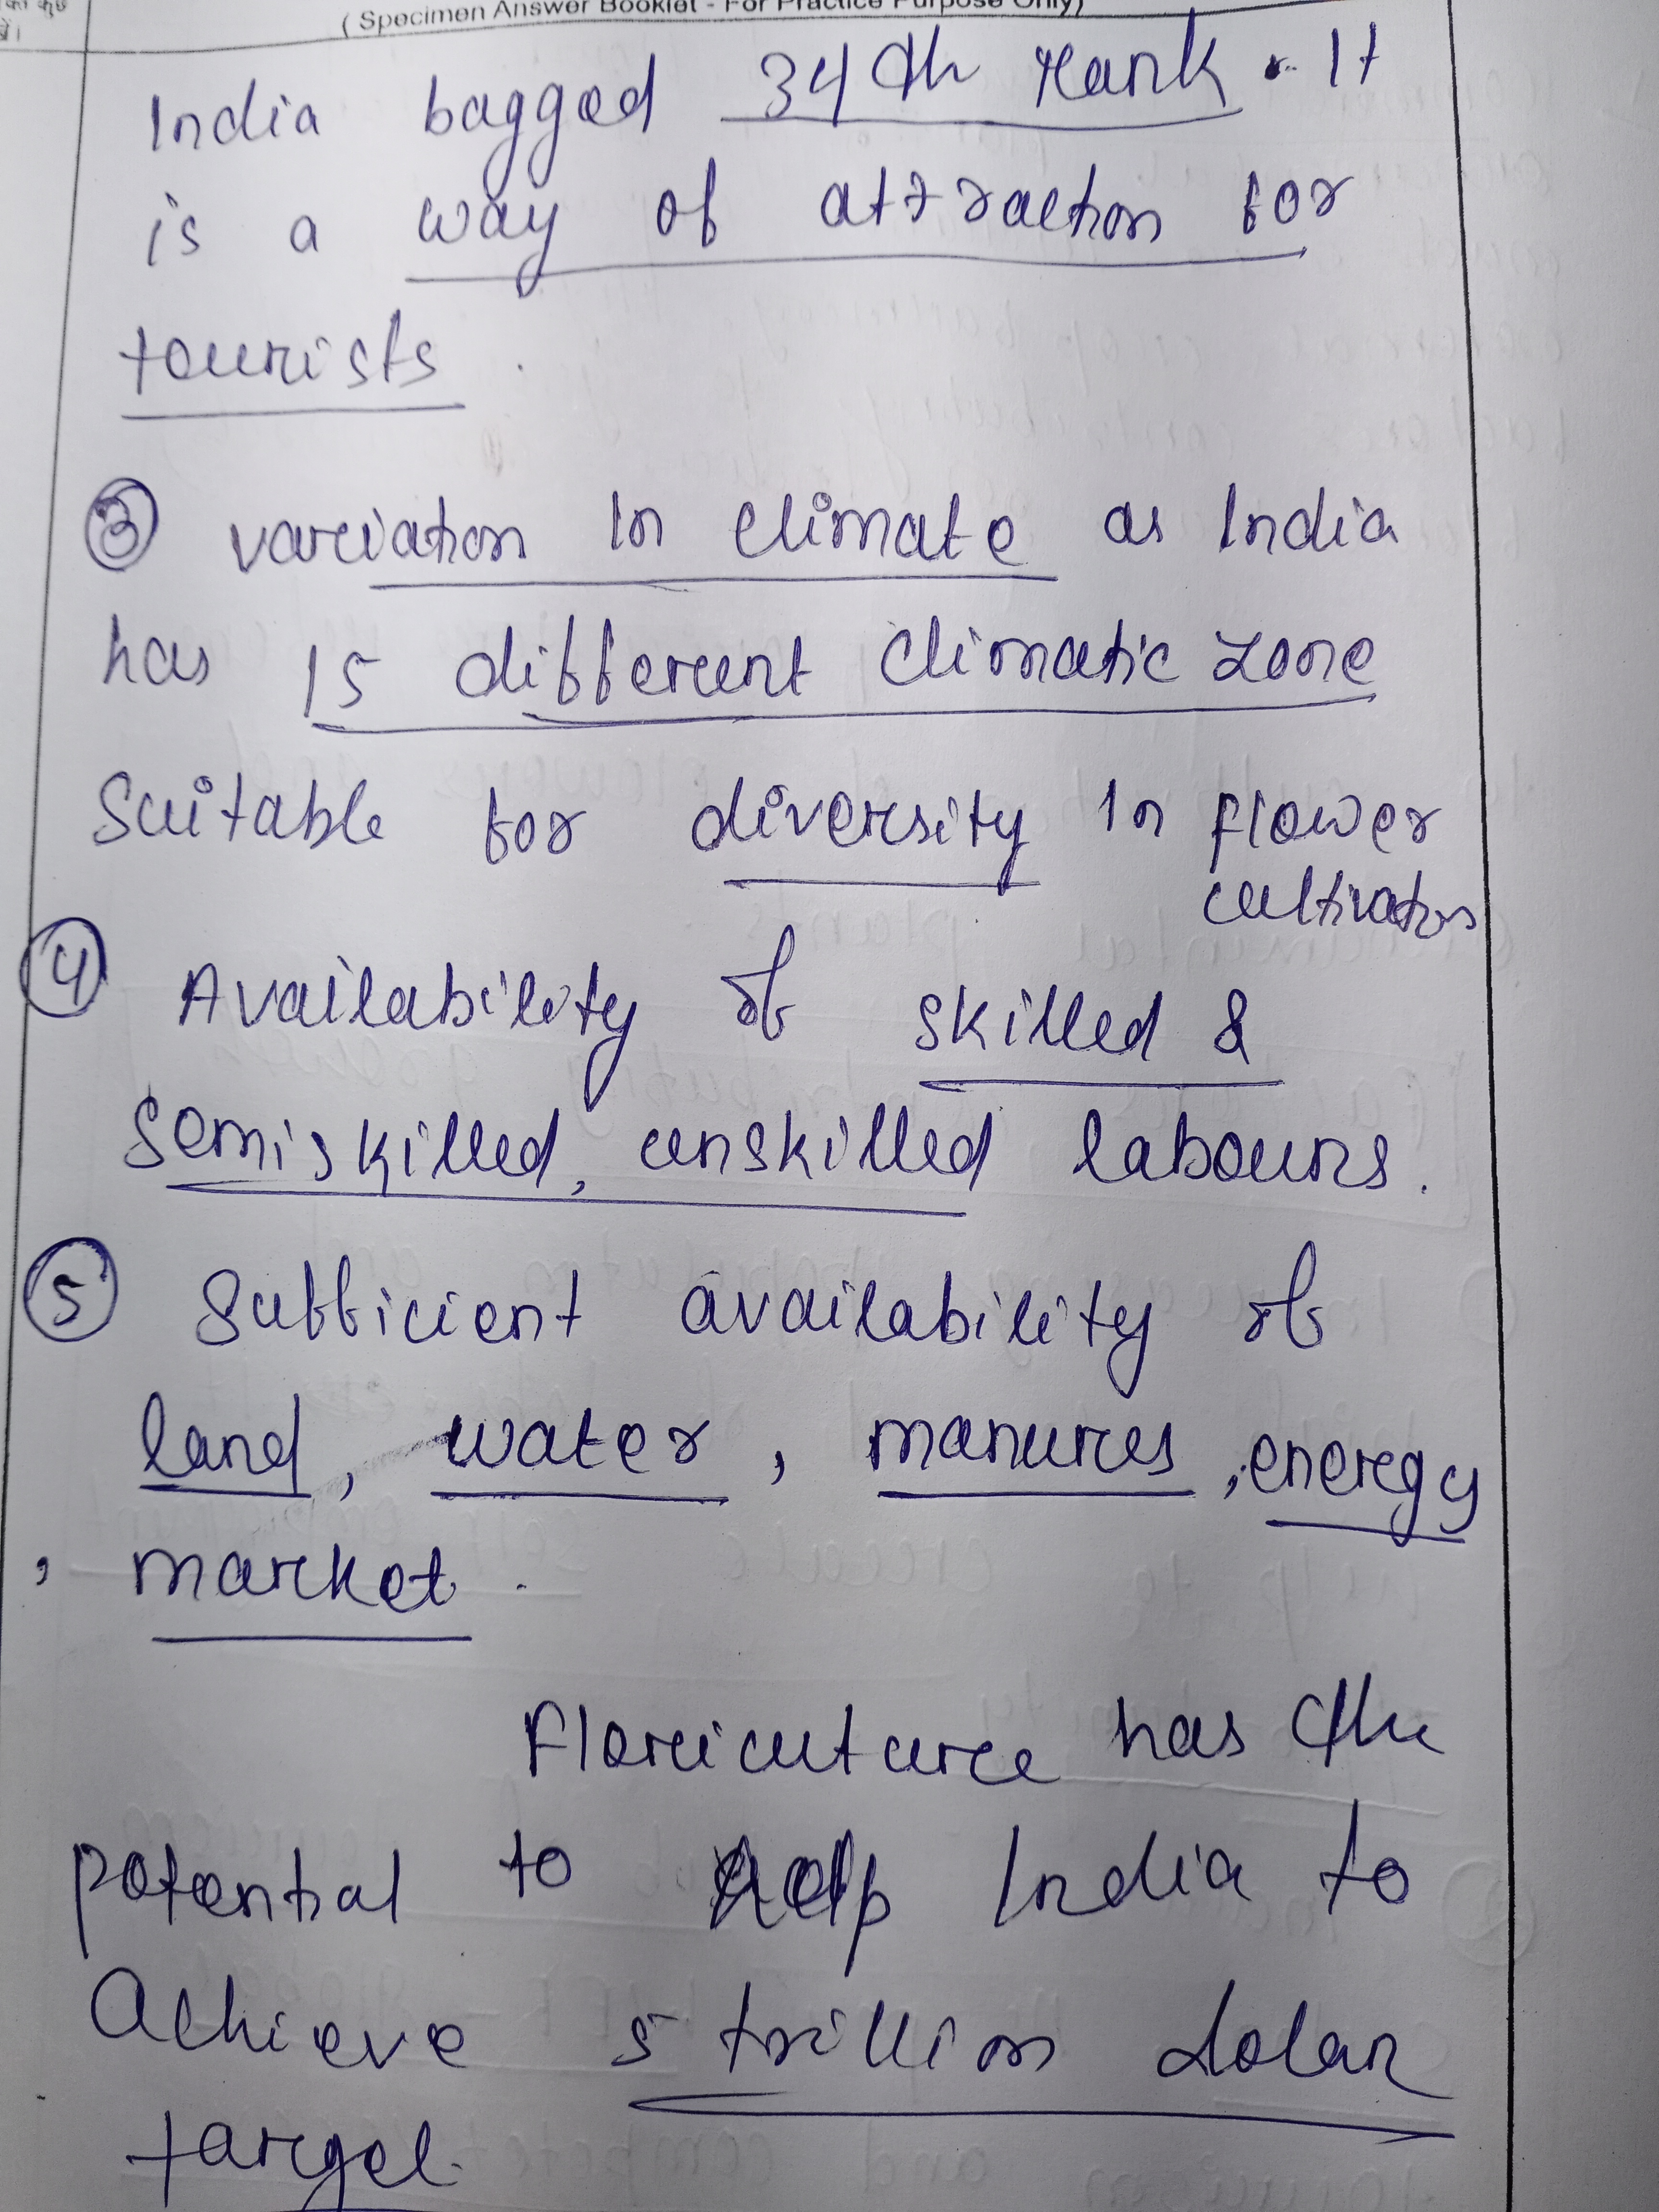 ( Specimen Answer Booklet - For Practice Purpose Only)
India bagged 34th rank. It
is a way of attraction for
tourists.
③ variation In climate as India
has 15 different climatic zone
Suitable for diversity In flower
cultivation
④ Availability of skilled &
semiskilled, unskilled labours.
⑤ Sufficient availability of
land, water, manures, energy
, market.
Floricuture has the
potential to help India to
Achieve 5 trillion dolar
target.